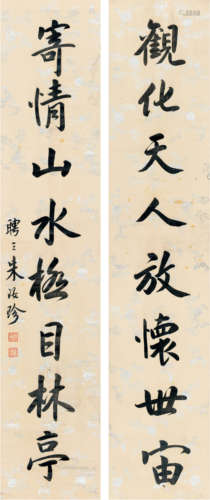 觀化天人放懷世宙
寄情山水極目林亭
聘三朱汝珍